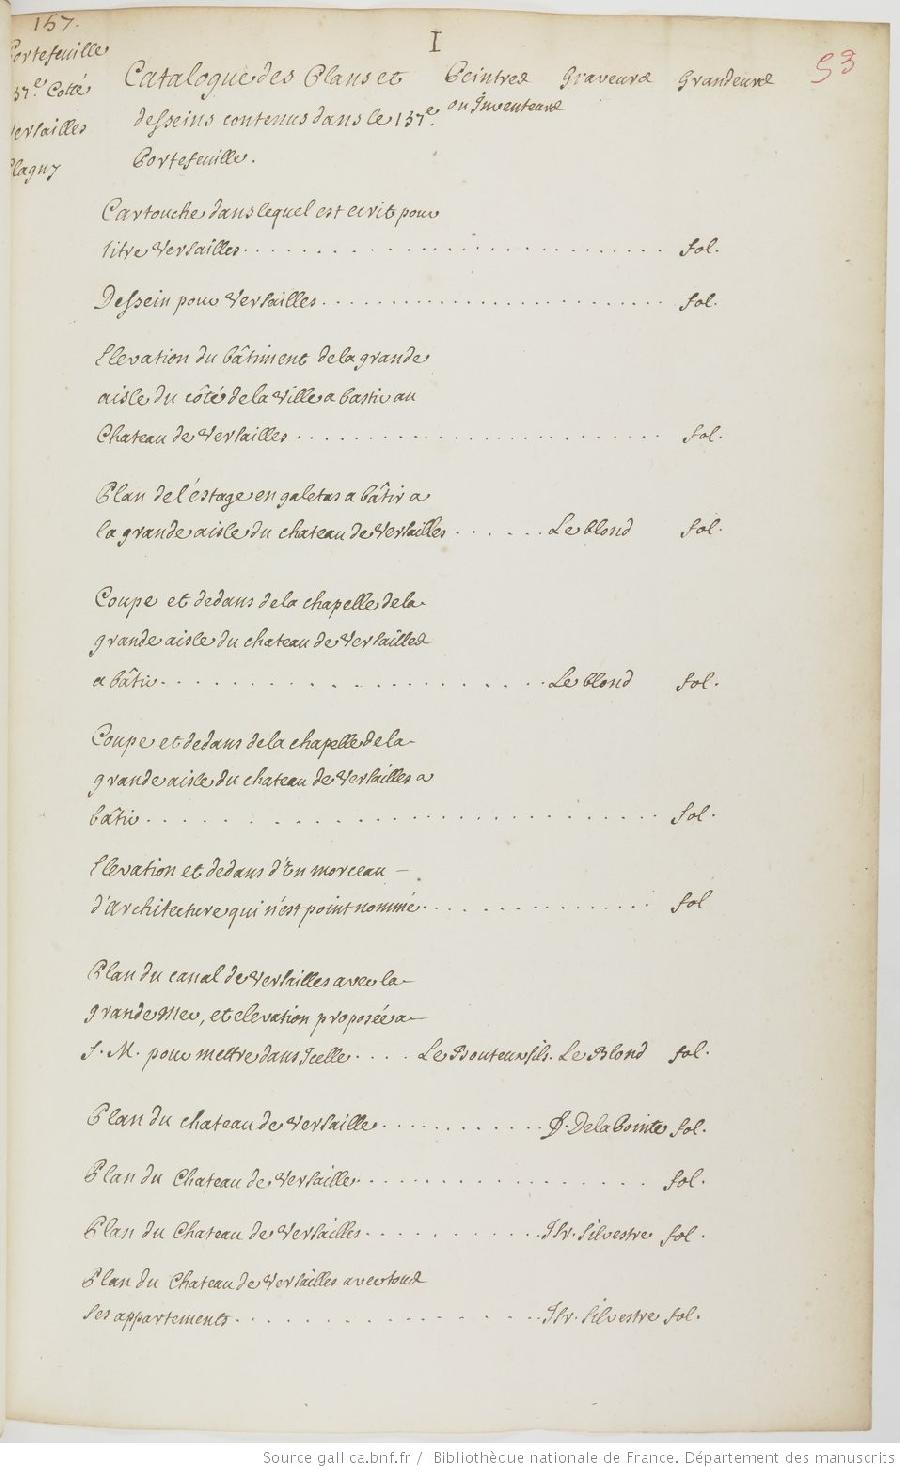 157.
I
53
Portefeuille
137e Cotté
Versailles
Clagny
Catalogue des Plans et Peintres Graveurs Grandeurs
desseins contenus dans le 137e. ou Inventeurs
Portefeuille.
Cartouche dans lequel est ecrit pour
titre Versailles fol.
Dessein pour Versailles fol.
Elevation du bâtiment de la grande
aisle du côté de la Ville a bastir au
Chateau de Versailles fol.
Plan de l'éstage en galetas a bâtir a
la grande aisle du chateau de Versailles Le blond fol.
Coupe et dedans de la chapelle de la
grande aisle du chateau de Versailles
a bâtir Le blond fol.
Coupe et dedans de la chapelle de la
grande aisle du chateau de Versailles a
bâtir fol.
Elevation et dedans d'Un morceau
d'Architecture qui n'est point nommé fol
Plan du canal de Versailles avec la
grande Mer, et elevation proposée a
S. M. pour mettre dans Icelle Le Bouteux fils. Le Blond fol.
Plan du chateau de Versaille De la Pointe fol.
Plan du Chateau de Versaille fol.
Plan du Chateau de Versailles Isr. Silvestre fol.
Plan du Chateau de Versailles avec tous
ses appartements Isr. Silvestre fol.
Source gallica.bnf.fr / Bibliothèque nationale de France. Département des manuscrits